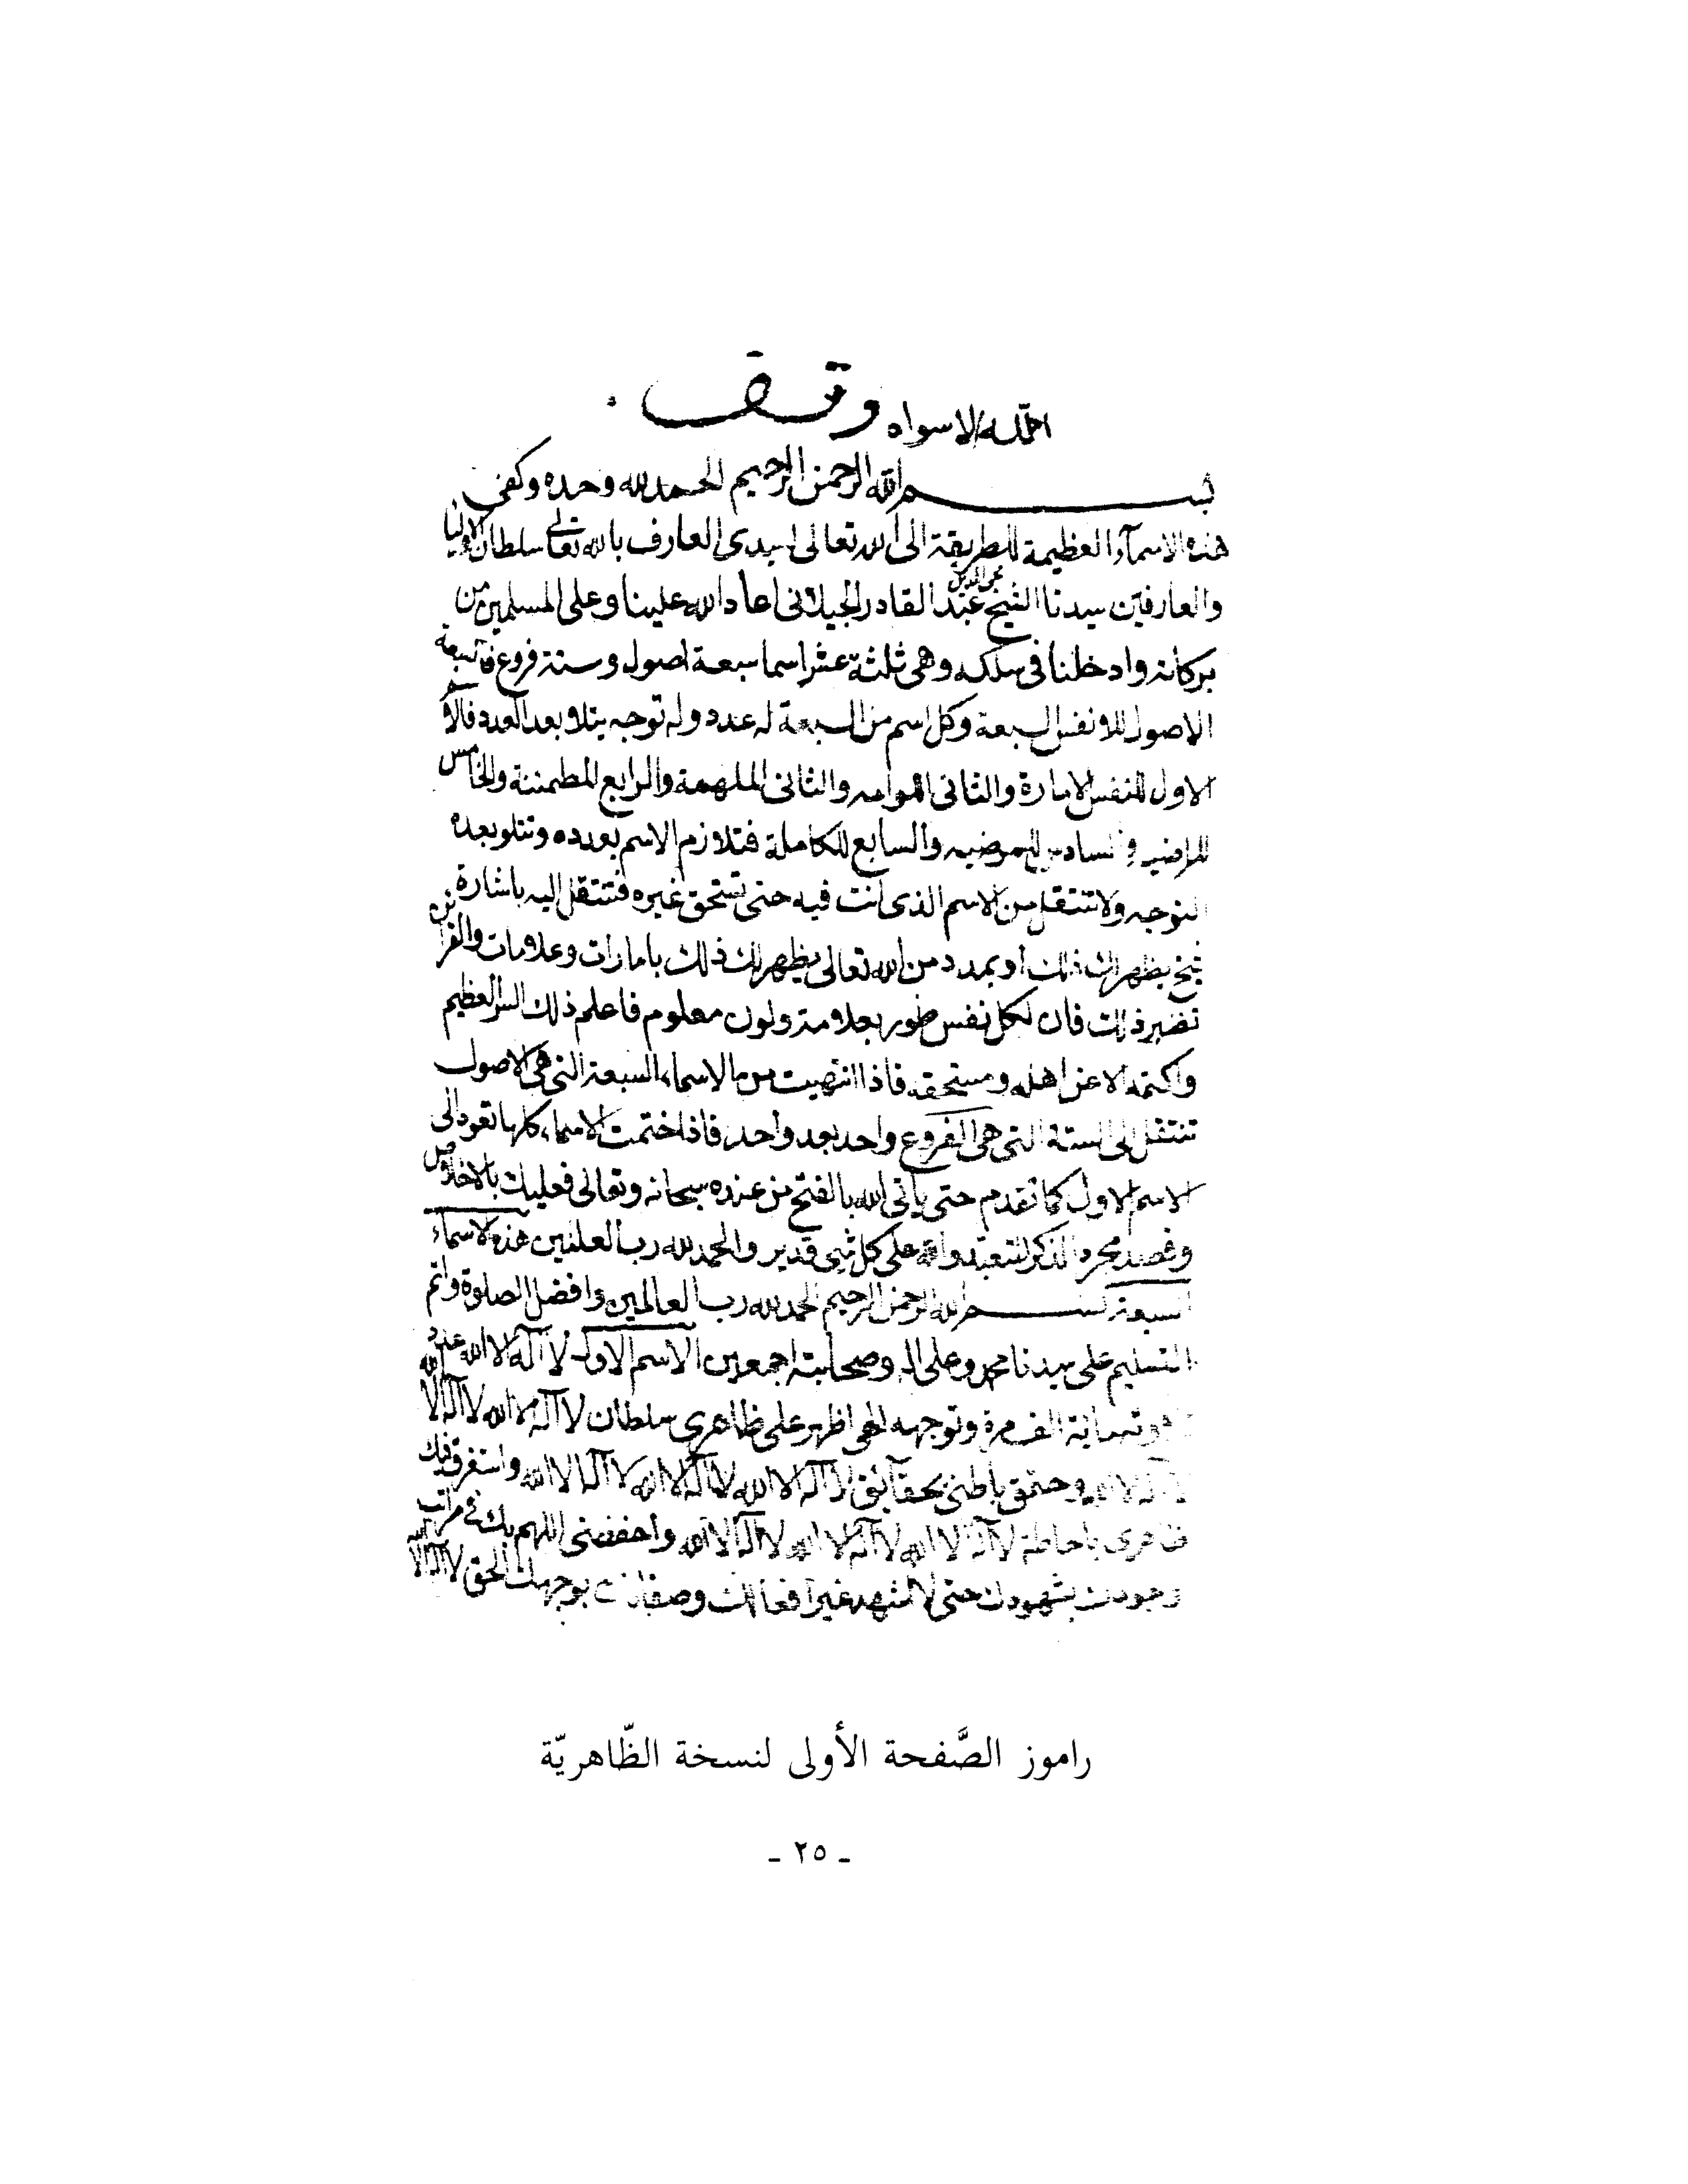 وقف
الله لا سواه
بسم الله الرحمن الرحيم الحمد لله وحده وكفى
هذه الاسمآء العظيمة للطريقة الى الله تعالى لسيدى العارف بالله تعالى سلطان الاوليا
والعارفين سيدنا الشيخ محى الدين عبد القادر الجيلانى اعاد الله علينا وعلى المسلمين من
بركاته وادخلنا فى سلكه وهى ثلثة عشر اسما سبعة اصول وستة فروع فالسبعة
الاصول للانفس السبعة وكل اسم من السبعة له عدد وله توجه يتلا بعد العدد
الاول للنفس الامارة والثانى اللوامه والثانى الملهمة والرابع المطمئنة والخامس
للراضيه والسادس للمرضيه والسابع للكاملة فتلازم الاسم بعدده وتتلو بعده
التوجه ولا تنتقل من الاسم الذى انت فيه حتى تستحق غيره فتنتقل اليه باشارة من
شيخ يظهر لك ذلك او بمدد من الله تعالى يظهر لك ذلك بامارات وعلامات
ذلك فان لكل نفس طور بعلامة ولون معلوم فاعلم ذلك السر العظيم
واكتمه الا عن اهله ومستحقه فاذا انتهيت من الاسماء السبعة التى هى الاصول
تنتقل الى الستة التى هى الفروع واحد بعد واحد فاذا ختمت الاسماء كلها تعود الى
الاسم الاول كما تقدم حتى ياتى الله بالفتح من عنده سبحانه وتعالى فعليك بالاخلاص
وقصد مجرد الذكر للتعبد والله على كل شى قدير والحمد لله رب العلمين هذه الاسماء
السبعة بسم الله الرحمن الرحيم الحمد لله رب العالمين وافضل الصلوة واتم
التسليم على سيدنا محمد وعلى اله وصحابته اجمعين الاسم الاول لا آله الا الله عدده
مرة وتوجهه الهى اظهر على ظاهرى سلطان لا آله الا الله لا آله الا
وحقق باطنى بحقآئق لا آله الا الله لا آله الا الله لا آله الا الله واستغرق فيك
ظاهرى باحاطة لا آله الا الله لا آله الا الله لا آله الا الله واحفظنى اللهم بك فى مراتب
وجودك بشهودك حتى لا اشهد غير افعالك وصفاتك بوجهك الحق لا آله الا الله
راموز الصَّفحة الأولى لنسخة الظّاهريّة
- ٢٥ -